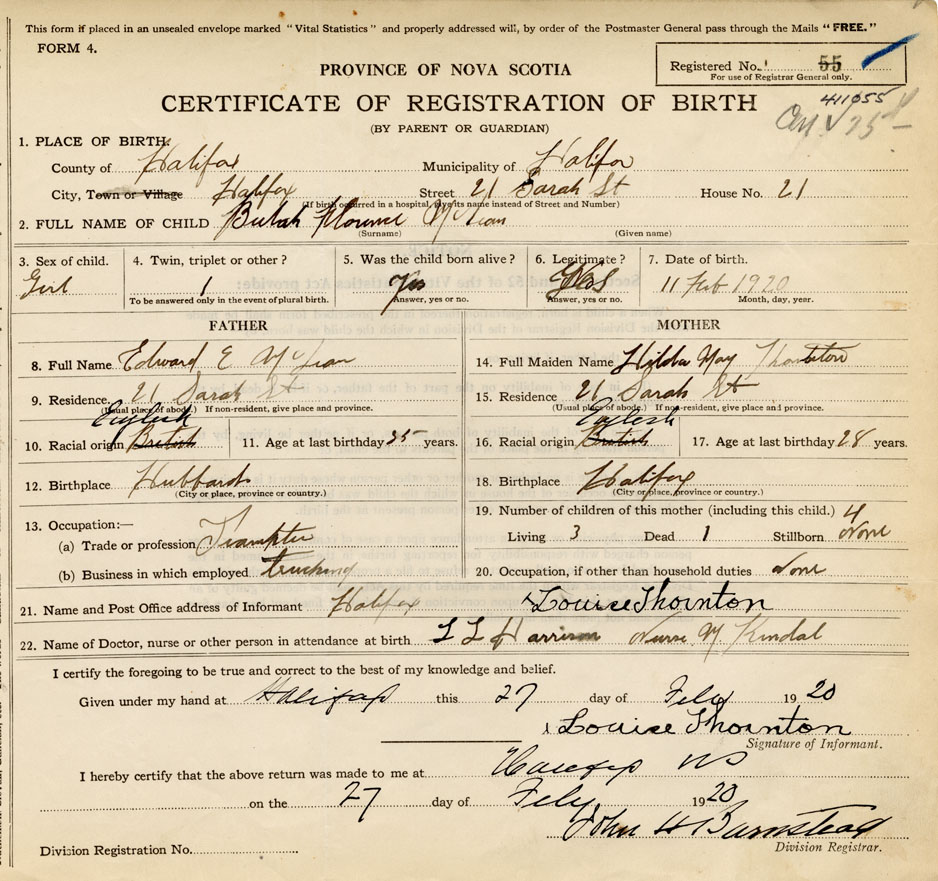 This form if placed in an unsealed envelope marked "Vital Statistics" and properly addressed will, by order of the Postmaster General pass through the Mails "FREE."
FORM 4.
Registered No. 55
For use of Registrar General only.
PROVINCE OF NOVA SCOTIA
CERTIFICATE OF REGISTRATION OF BIRTH
411055
(BY PARENT OR GUARDIAN)
1. PLACE OF BIRTH.
County of Halifax Municipality of Halifax
City, Town or Village Halifax Street 21 Sarah St House No. 21
(If birth occurred in a hospital, give its name instead of Street and Number)
2. FULL NAME OF CHILD Bulah Florence McLean
(Surname) (Given name)
3. Sex of child. 4. Twin, triplet or other? 5. Was the child born alive? 6. Legitimate? 7. Date of birth.
Girl 1 Yes Yes 11 Feb 1920
To be answered only in the event of plural birth. Answer, yes or no. Answer, yes or no. Month, day, year.
FATHER
8. Full Name Edward E McLean
9. Residence. 21 Sarah St
(Usual place of abode.) If non-resident, give place and province.
English
10. Racial origin British 11. Age at last birthday 35 years.
12. Birthplace Hubbards
(City or place, province or country.)
13. Occupation:—
(a) Trade or profession Teamster
(b) Business in which employed trucking
MOTHER
14. Full Maiden Name Hilda May Thornton
15. Residence 21 Sarah St
(Usual place of abode.) If non-resident, give place and province.
English
16. Racial origin British 17. Age at last birthday 28 years.
18. Birthplace Halifax
(City or place, province or country.)
19. Number of children of this mother (including this child.) 4
Living 3 Dead 1 Stillborn None
20. Occupation, if other than household duties None
21. Name and Post Office address of Informant Halifax Louise Thornton
22. Name of Doctor, nurse or other person in attendance at birth L L Harrison Nurse M Kindal
I certify the foregoing to be true and correct to the best of my knowledge and belief.
Given under my hand at Halifax this 27 day of Feby 1920
x Louise Thornton
Signature of Informant.
I hereby certify that the above return was made to me at Halifax NS
on the 27 day of Feby 1920
John H Barnstead
Division Registrar.
Division Registration No.